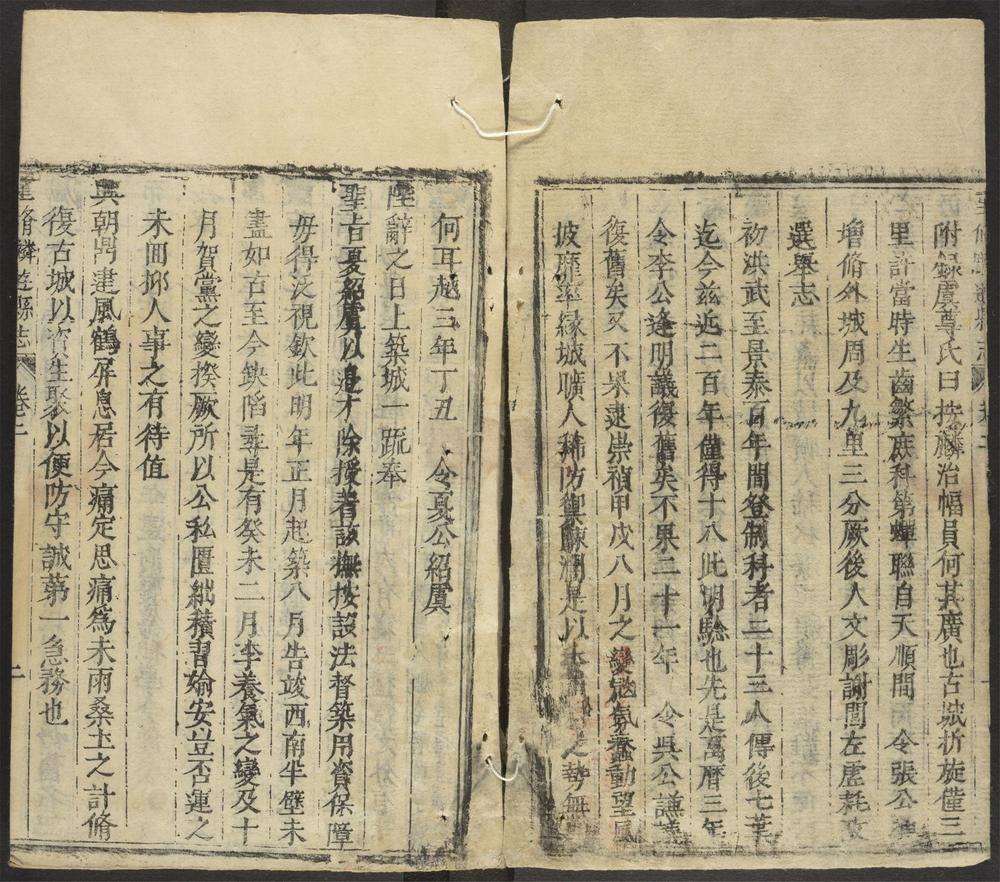 附錄虞尊氏曰按麟治幅員何其廣也古城折旋僅三
里許當時生齒繁庶科第蟬聯自天順間 令張公
增脩外城周及九里三分厥後人文彫謝閭左虛耗攷
選舉志
初洪武至景泰百年間登制科者二十三人傳後七葉
迄今茲近二百年僅得十八此明驗也先是萬曆三年
令李公逢明議復舊矣不果二十一年 令吳公謙議
復舊矣又不果逮崇禎甲戌八月之變寇氛蠢動望風
披靡率緣城曠人稀防禦踈濶是以 之勢無
何耳越三年丁丑 令夏公紹虞
陛辭之日上築城一疏奉
聖旨夏紹虞以邊才除授著該撫按該法督築用資保障
毋得泛視欽此明年正月起築八月告竣西南半壁未
盡如古至今缺陷尋是有癸未二月李養氣之變及十
月賀黨之變揆厥所以公私匱絀積習婾安豈否運之
未回抑人事之有待值
興朝鼎建風鶴屏息居今痛定思痛為未雨桑土之計脩
復古城以資生聚以便防守誠苐一急務也
重脩麟遊縣志 卷二 二